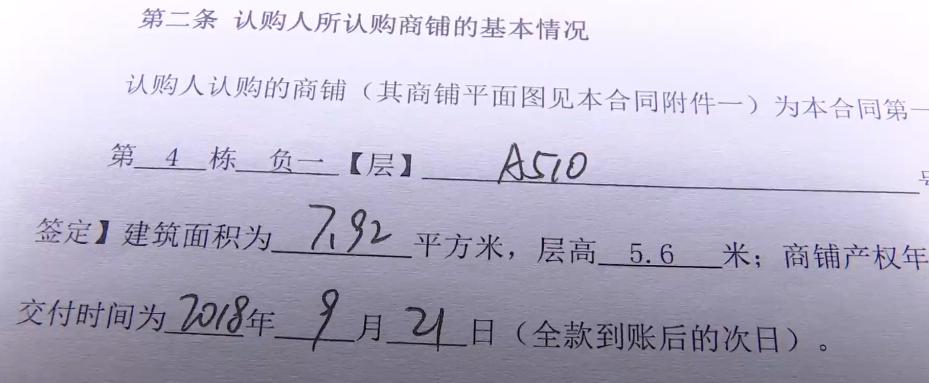 第二条 认购人所认购商铺的基本情况
认购人认购的商铺（其商铺平面图见本合同附件一）为本合同第一
第 4 栋 负一 【层】 A510
签定】建筑面积为 7.92 平方米，层高 5.6 米；商铺产权年
交付时间为 2018年 9 月 21 日（全款到账后的次日）。